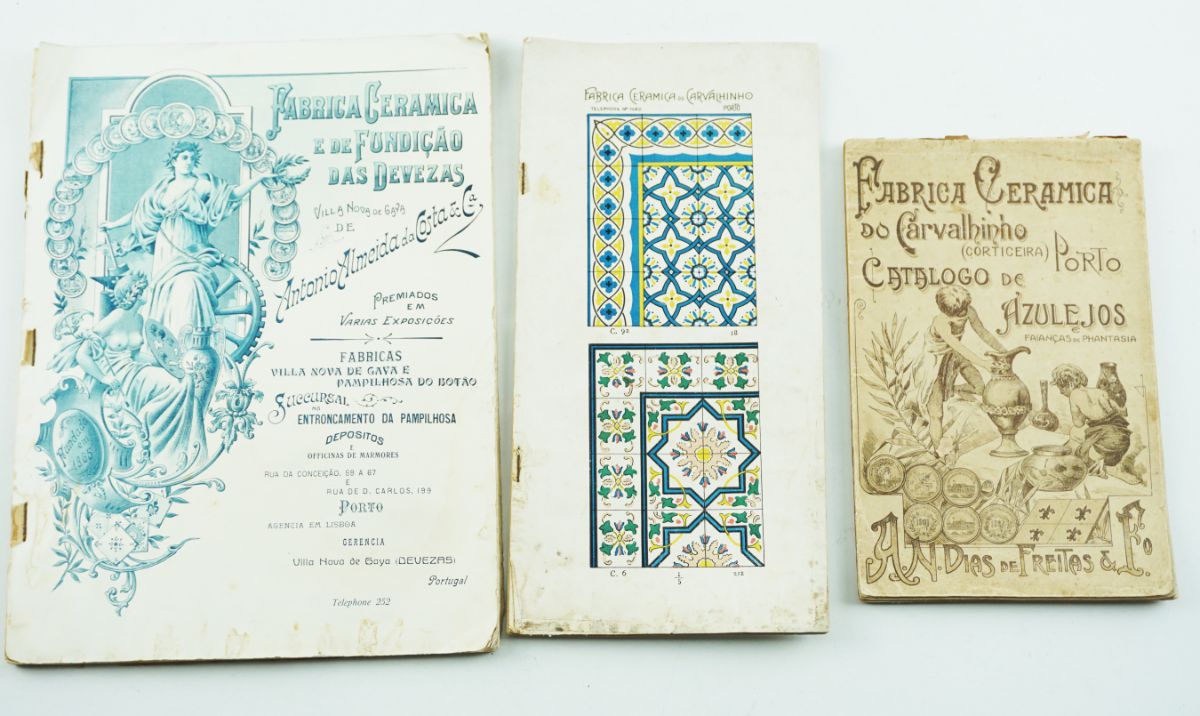 FABRICA CERAMICA
E DE FUNDIÇÃO
DAS DEVEZAS
VILLA NOVA DE GAYA
DE
Antonio Almeida da Costa & Ca
PREMIADOS
EM
VARIAS EXPOSIÇÕES
FABRICAS
VILLA NOVA DE GAYA E
PAMPILHOSA DO BOTÃO
SUCCURSAL
NO
ENTRONCAMENTO DA PAMPILHOSA
DEPOSITOS
E
OFFICINAS DE MARMORES
RUA DA CONCEIÇÃO, 59 A 67
E
RUA DE D. CARLOS, 199
PORTO
AGENCIA EM LISBOA
GERENCIA
Villa Nova de Gaya (DEVEZAS)
Portugal
Telephone 252
Fundada
1865
FABRICA CERAMICA DO CARVALHINHO
PORTO
C. 92
18
C. 6
1/5
212
FABRICA CERAMICA
DO Carvalhinho
(CORTICEIRA) PORTO
CATALOGO DE
AZULEJOS
E
FAIANÇAS DE PHANTASIA
A. N. DIAS DE FREITAS & Fo.